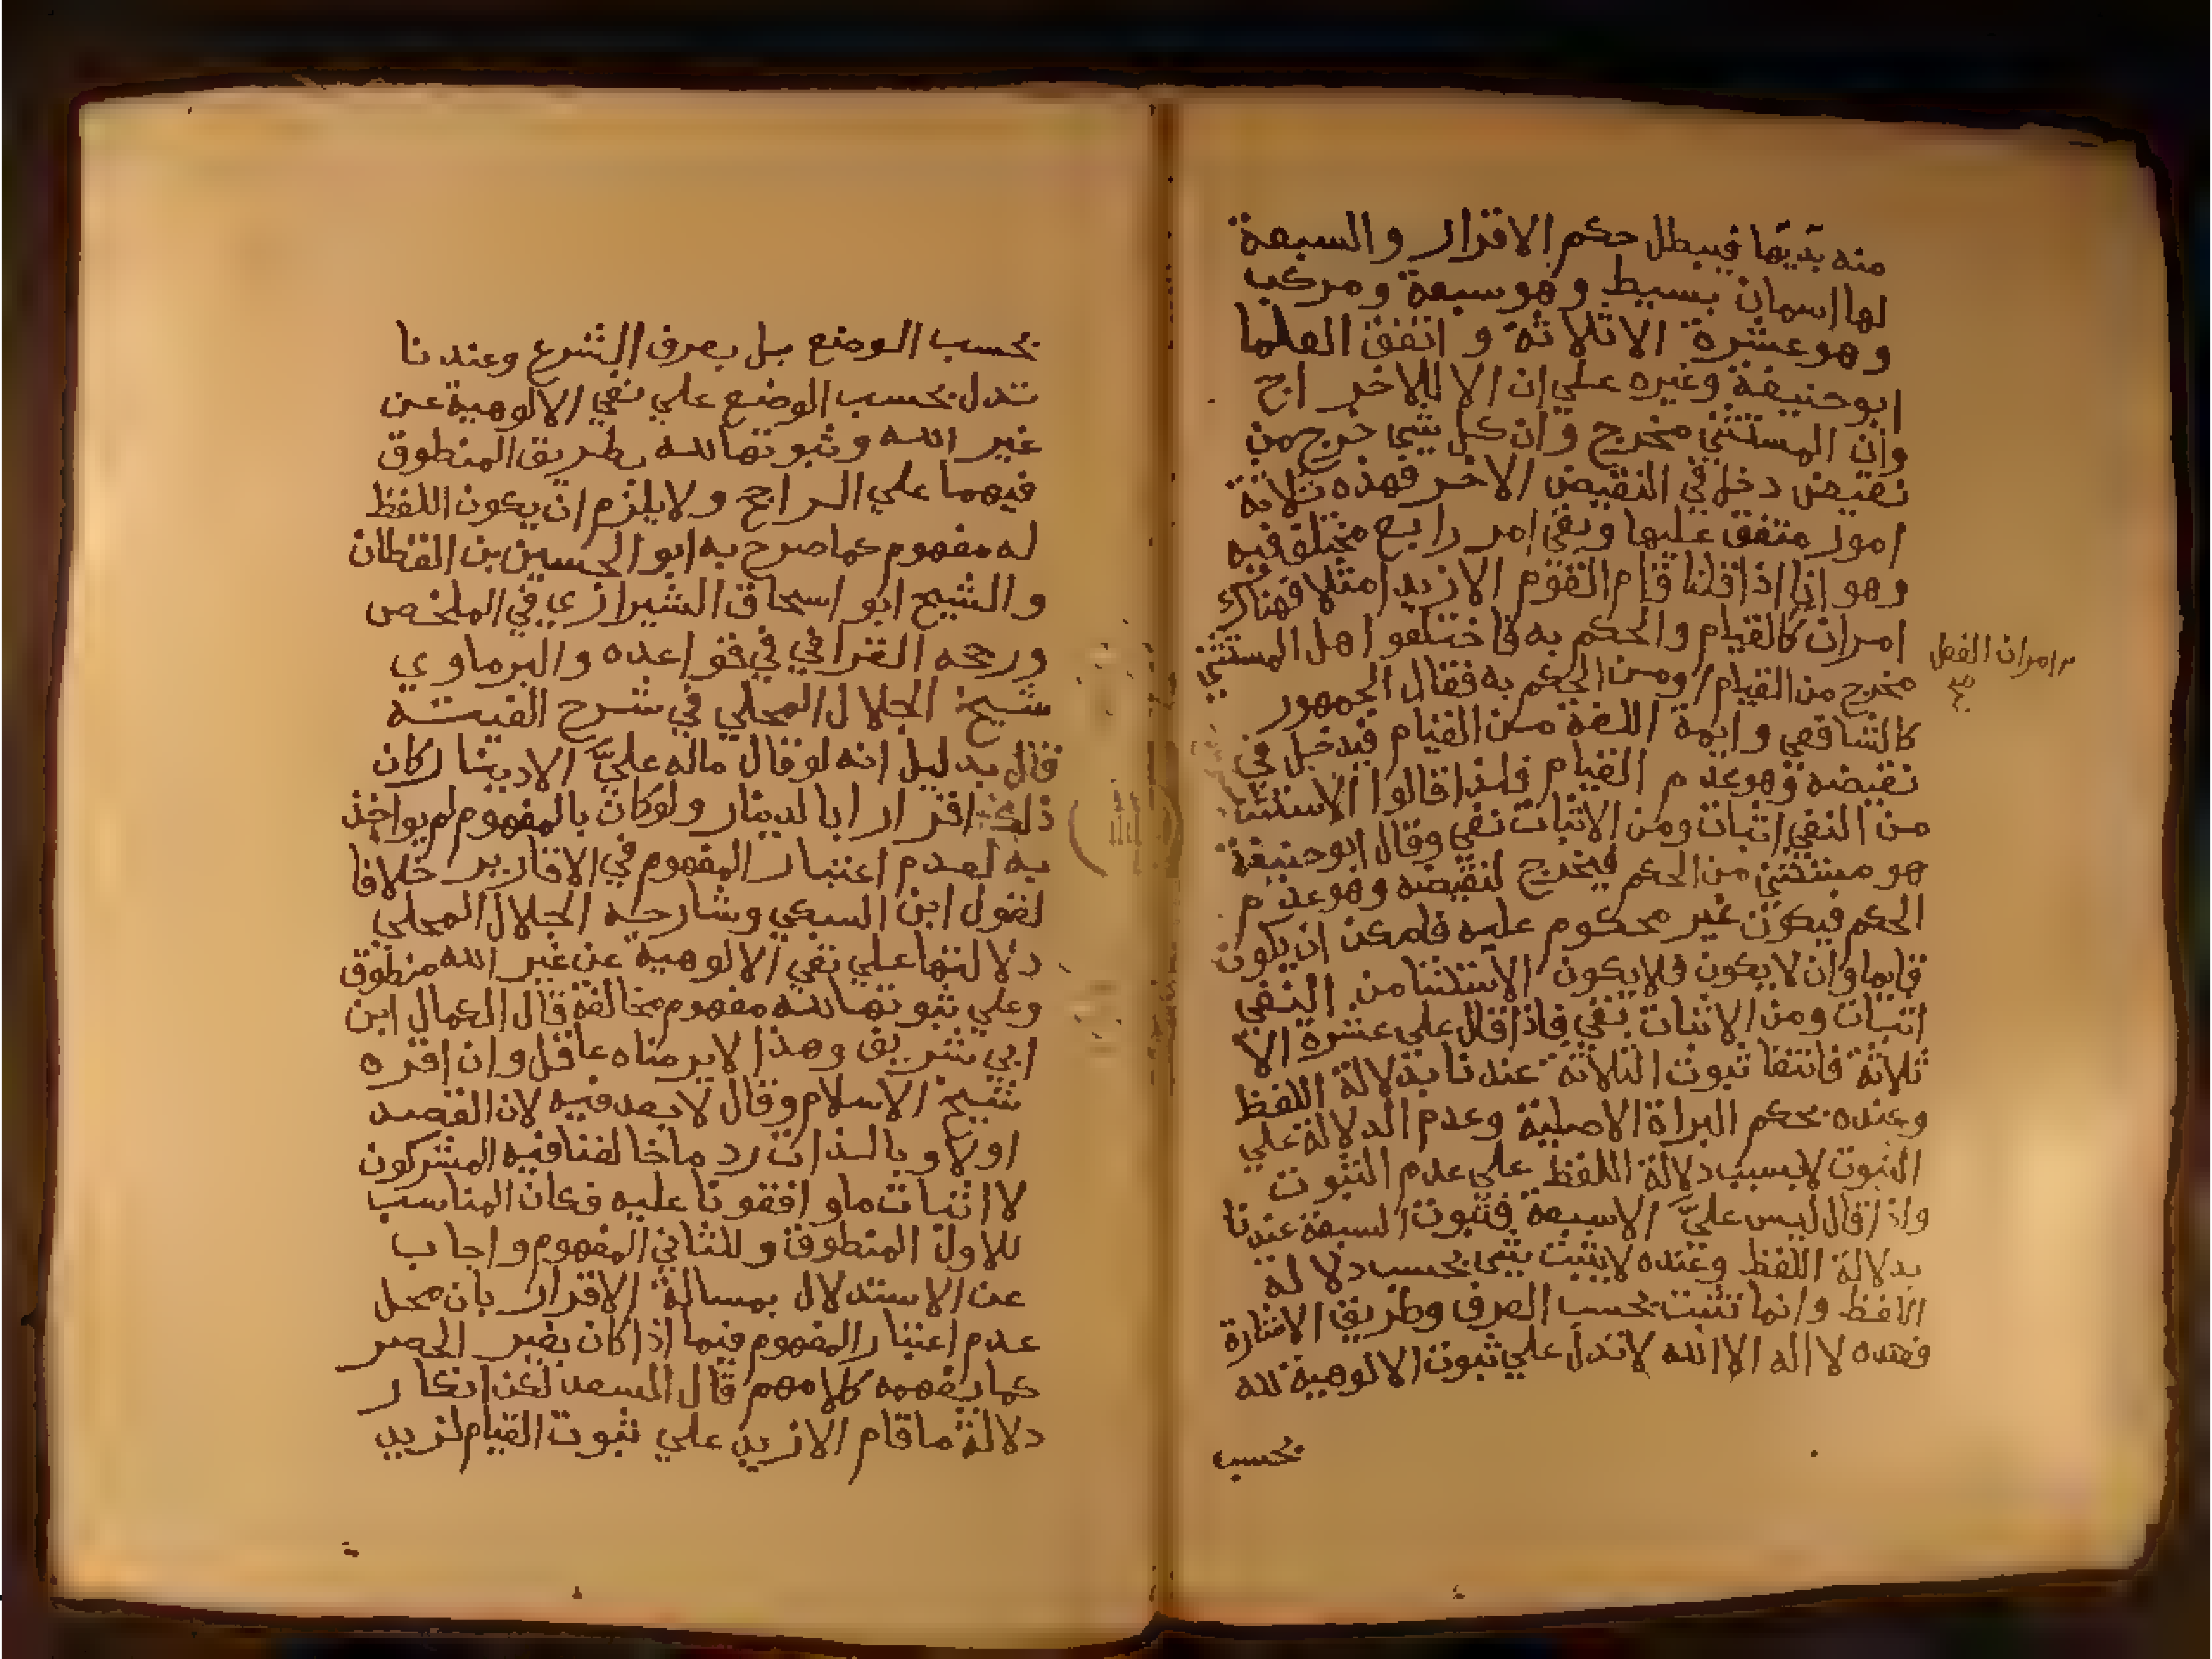 منه بديتها فيبطل حكم الاقرار والسبعة
لها اسمان بسيط وهو سبعة ومركب
وهو عشرة الا ثلاثة و اتفق العلما
ابو حنيفة وغيره علي ان الا للاخراج
وان المستثني مخرج وان كل شي خرج من
نقيض دخل في النقيض الاخر فهذه ثلاثة
امور متفق عليها وبقي امر رابع مختلف فيه
وهو انا اذا قلنا قام القوم الا زيدا مثلا فهناك
امران كالقيام والحكم به فاختلفو اهل المستثني
مخرج من القيام او من الحكم به فقال الجمهور
امران الفعل
صح
كالشافعي وايمة اللغة من القيام فيدخل في
نقيضه وهو عدم القيام فلذا قالوا الاستثنا
من النفي اثبات ومن الاثبات نفي وقال ابو حنيفة
هو مستثني من الحكم فيخرج لنقيضه وهو عدم
الحكم فيكون غير محكوم عليه فامكن ان يكون
قايما وان لا يكون فلا يكون الاستثنا من النفي
اثبات ومن الاثبات نفي فاذا قال علي عشرة الا
ثلاثة فانتفا ثبوت الثلاثة عندنا بدلالة اللفظ
وعنده بحكم البراة الاصلية وعدم الدلالة علي
الثبوت لا بسبب دلالة اللفظ علي عدم الثبوت
واذا قال ليس عليّ الا سبعة فثبوت السبعة عندنا
بدلالة اللفظ وعنده لا يثبت شي بحسب دلالة
اللفظ وانما تثبت بحسب العرف وطريق الاشارة
فعنده لا اله الا الله لا تدل علي ثبوت الالوهية لله
بحسب
بحسب الوضع بل بعرف الشرع وعندنا
تدل بحسب الوضع علي نفي الالوهية عن
غير الله وثبوتها لله بطريق المنطوق
فيهما علي الراجح ولا يلزم ان يكون اللفظ
له مفهوم كما صرح به ابو الحسين بن القطان
والشيخ ابو اسحاق الشيرازي في الملخص
ورجحه القرافي في قواعده والبرماوي
شيخ الجلال المحلي في شرح الفيته
قال بدليل انه لو قال ماله عليّ الا دينار كان
ذلك اقرارا بالدينار ولو كان بالمفهوم لم يواخذ
به لعدم اعتبار المفهوم في الاقارير خلافا
لقول ابن السبكي وشارحه الجلال المحلي
دلالتها علي نفي الالوهية عن غير الله منطوق
وعلي ثبوتها لله مفهوم مخالفة قال الكمال ابن
ابي شريف وهذا لا يرضاه عاقل وان اقره
شيخ الاسلام وقال لا بعد فيه لان القصد
اولا وبالذات رد ما خالفنا فيه المشركون
لا اثبات ما وافقونا عليه فكان المناسب
للاول المنطوق وللثاني المفهوم واجاب
عن الاستدلال بمسالة الاقرار بان محل
عدم اعتبار المفهوم فيما اذا كان بغير الحصر
كما يفهمه كلامهم قال السعد لكن انكار
دلالة ما قام الا زيد علي ثبوت القيام لزيد